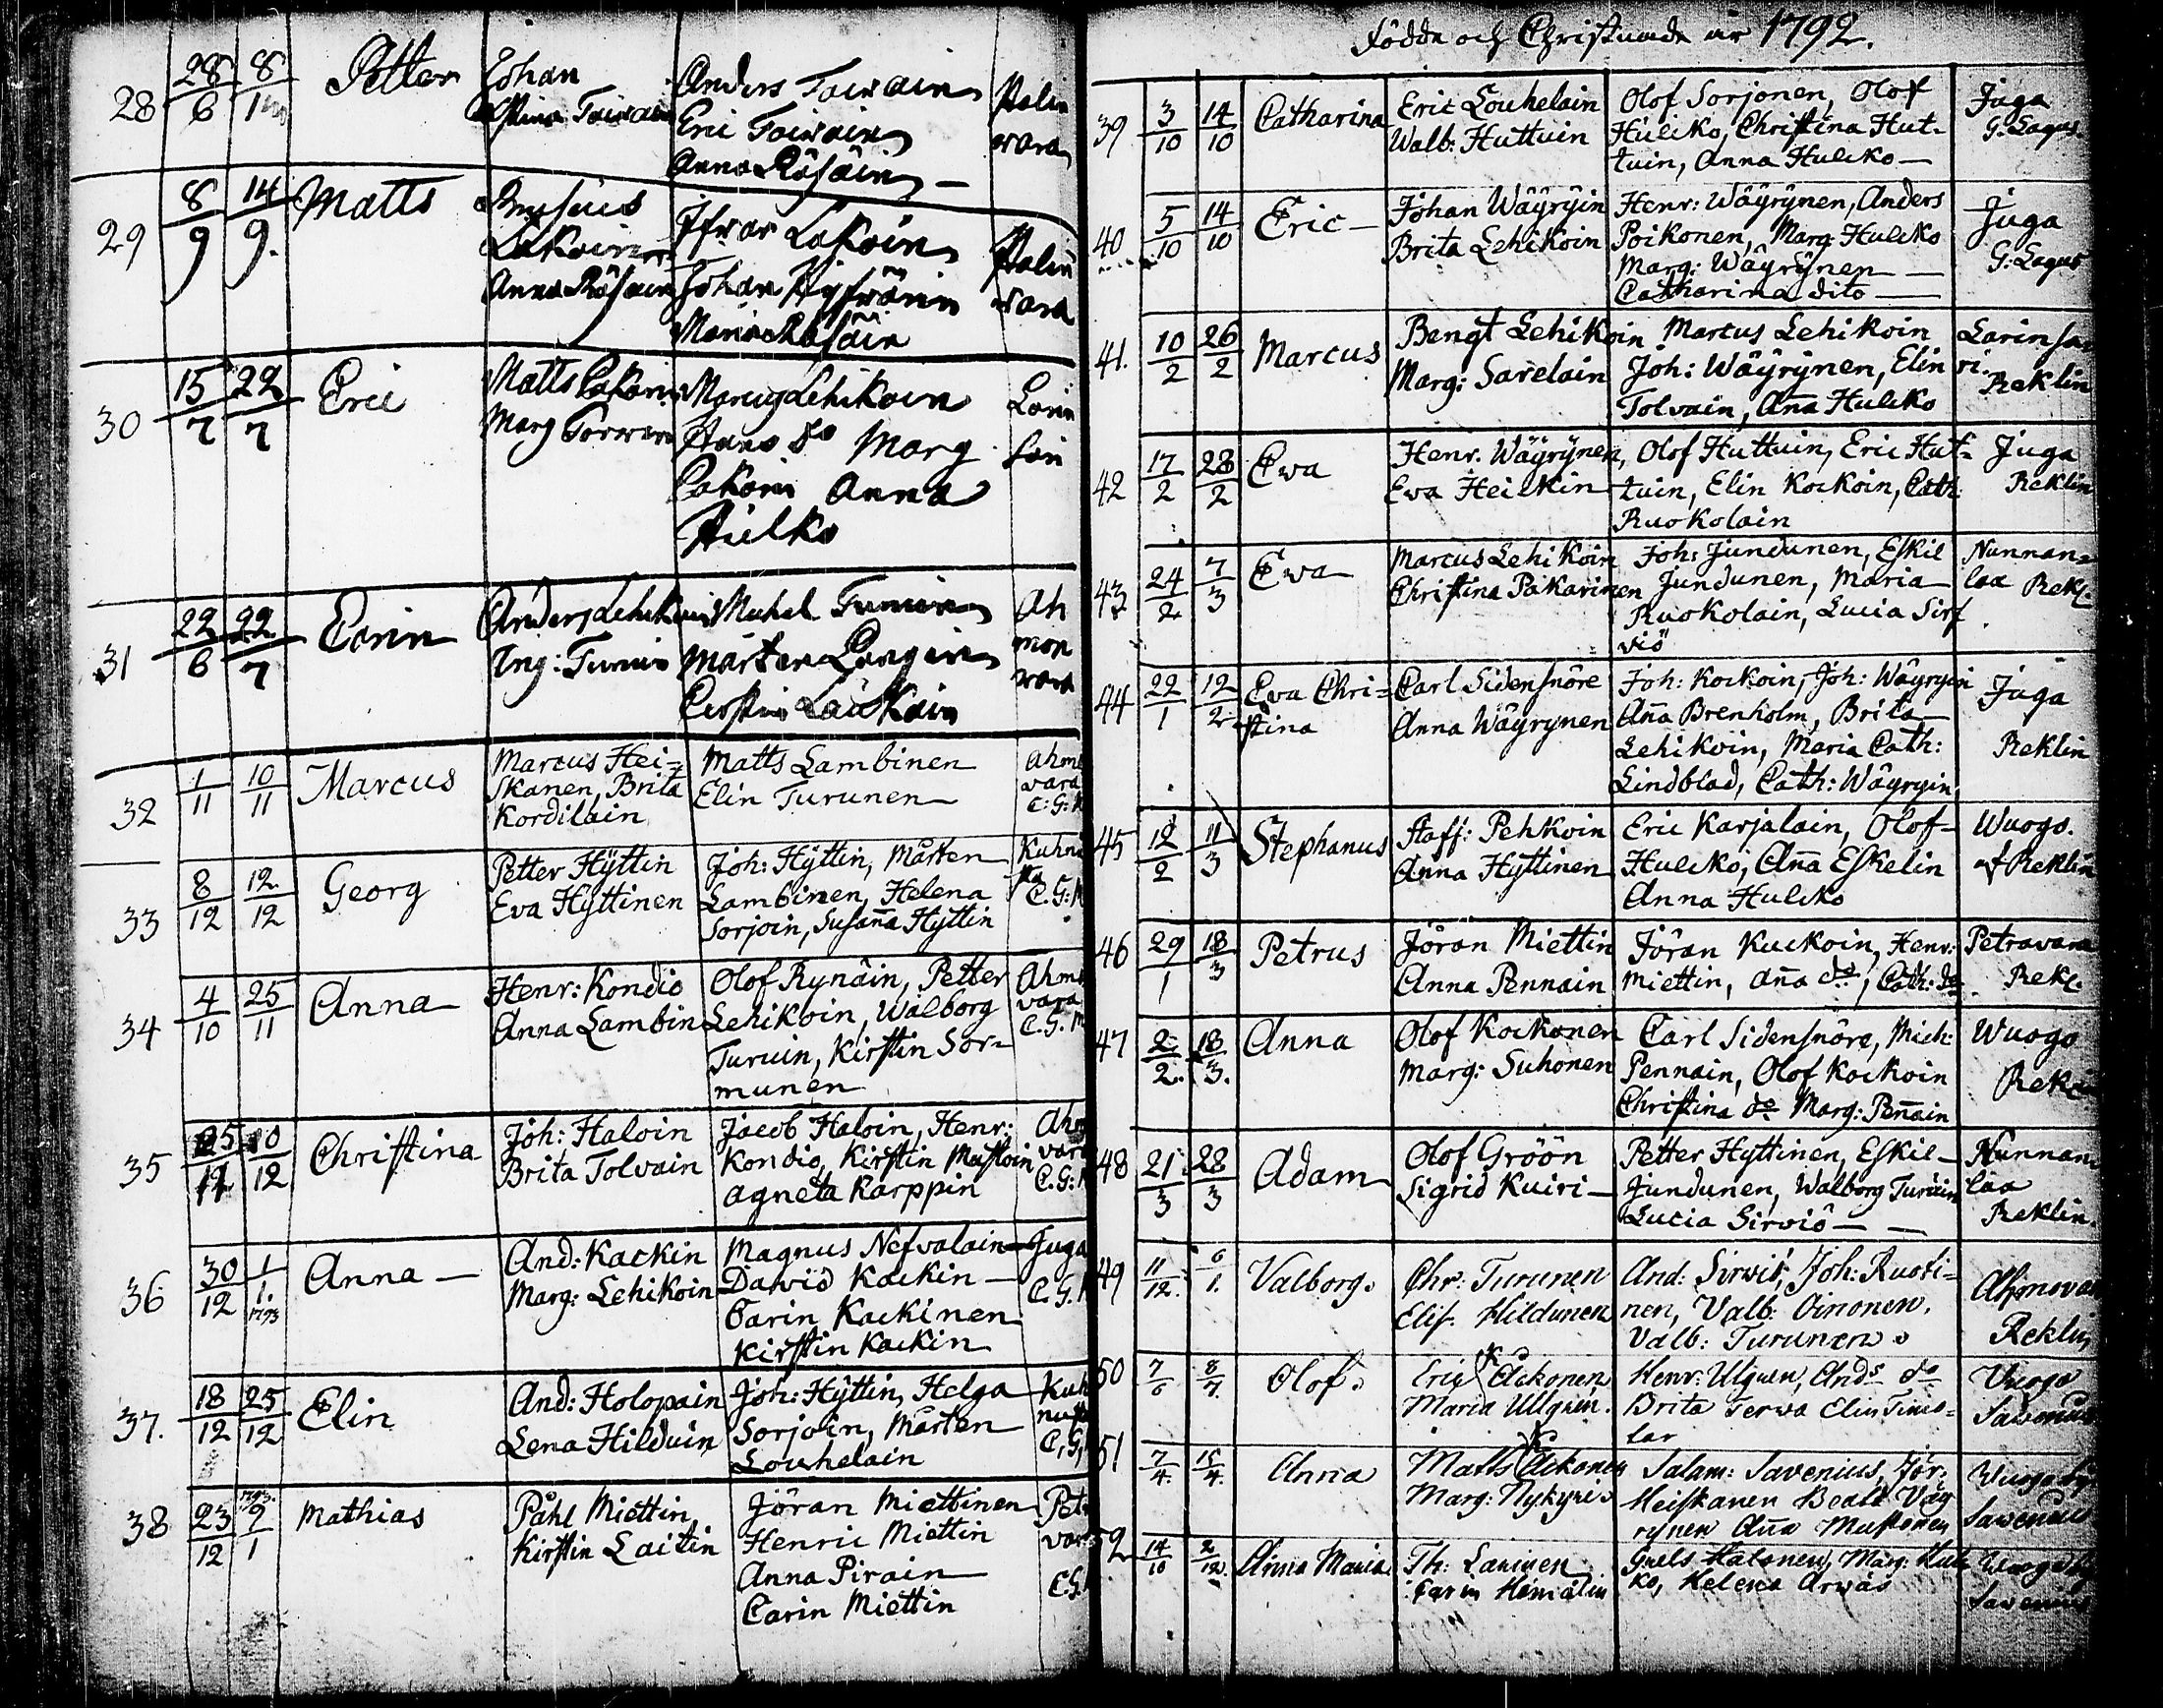 28 28/6 8/1 Petter Johan Anders Toivain Palin
Stina Toivain Eric Toivain vara
Anna Räsäin
29 8/9 14/9. Matts Lakoin Ifvar Lakoin Palin
Anna Räsäin Johan vara
Maria Räsäin
30 15/7 22/7 Eric Matts Pakarin Marcus Lehikoin Larin
Marg Torvin Hans do Marg sari
Pakarin Anna
Hulko
31 22/6 22/7 Carin Anders Lehikoin Michel Turuin Ah
Ing: Turuin Mårten mon
Cirstin Laukain vara
32 1/11 10/11 Marcus Marcus Hei= Matts Lambinen Ahmo
skanen, Brita Elin Turunen vara
Kordilain C: G:
33 8/12 12/12 Georg Petter Hyttin Joh: Hyttin, Mårten Kuhnu
Eva Hyttinen Lambinen, Helena sta
Sorjoin, Susaña Hyttin C. G:
34 4/10 25/11 Anna Henr: Kondio Olof Rynäin, Petter Ahmo
Anna Lambin Lehikoin, Walborg vara
Turuin, Kirstin Sor= C. G.
munen
35 25/11 10/12 Christina Joh: Haloin Jacob Haloin, Henr: Ahm
Brita Tolvain Kondio, Kirstin Mustoin vara
Agneta Karppin C. G:
36 30/12 1/1. 1793 Anna And: Kackin Magnus Nefvalain Juga
Marg: Lehikoin David Kackin C. G.
Carin Kackinen
Kirstin Kackin
37. 18/12 25/12 Elin And: Holopain Joh: Hyttin, Helga Kuh
Lena Hilduin Sorjoin, Mårten nusta
Louhelain C, G,
38 23/12 1793. 9/1 Mathias Påhl Miettin Jöran Miettinen Petr
Kirstin Laitin Henric Miettin vara
Anna Pirain C. G.
Carin Miettin
Födde och Christnade år 1792.
39 3/10 14/10 Catharina Eric Louhelain Olof Sorjonen, Olof Juga
Walb: Huttuin Hulcko, Christina Hut= G: Lagus
tuin, Anna Hulcko
40 5/10 14/10 Eric Johan Wäyryin Henr: Wäyrynen, Anders Juga
Brita Lehikoin Poikonen, Marg: Hulcko G: Lagus
Marg: Wäyrynen
Catharina dito
41. 10/2 26/2 Marcus Bengt Lehikoin Marcus Lehikoin Larinsa
Marg: Sarelain Joh: Wäyrynen, Elin ri. Reklin
Tolvain, Aña Hulcko
42 17/2 28/2 Ewa Henr. Wäyrynen, Olof Huttuin, Eric Hut= Juga
Ewa Heiskin tuin, Elin Kockoin, Cath: Reklin
Ruokolain
43 24/2 7/3 Ewa Marcus Lehikoin Joh: Jundunen, Eskil Nunnan=
Christina Pakarinen Jundunen, Maria laa Rekl.
Ruokolain, Lucia Sirf
viö
44 22/1 12/2 Eva Chri= Carl Sidensnöre Joh: Kockoin, Joh: Wäyryin Juga
stina Anna Wäyrynen Aña Brenholm, Brita
Lehikoin, Maria Cath: Reklin
Lindblad, Cath: Wäyryin.
45 12/2 11/3 Stephanus Staff: Pehkoin Eric Karjalain, Olof Wuogo.
Anna Hyttinen Hulcko, Aña Eskelin Reklin
Anna Hulcko
46 29/1 18/3 Petrus Jöran Miettin Jöran Kuckoin, Henr: Petravara
Anna Pennain Miettin, Aña do, Cath: do Rekl.
47 2/2. 18/3. Anna Olof Kockonen Carl Sidensnöre, Mich: Wuogo
Marg: Suhonen Pennain, Olof Kockoin Rekl
Christina do Marg: Peñain
48 21/3 28/3 Adam Olof Gröön Petter Hyttinen, Eskil Nunnan
Sigrid Kuiri Jundunen, Walborg Turuin laa
Lucia Sirviö Reklin.
49 11/12. 6/1. Valborg. Chr: Turunen And: Sirviö, Joh: Ruoti= Ahmovar
Elis. Hildunen nen, Valb: Oinonen, Reklin
Valb: Turunen
50 7/6 8/7. Olof. Eric Kackonen Henr: Ulguen, Ands do Vuogo
Maria Ullguen. Brita Terwa Elin Timo= Savenius
lar
51 7/4. 15/4. Anna Matts Kackonen Salam: Savenius, Jör: Wuogo by
Marg: Nykyri Heiskanen Beata Väy Savenius
rynen Aña Mustonen
52 14/10 2/12. Anna Maria Th: Laninen Halonen, Marg: Hulc Wuogo by
Carin Hämälin ko, Helena Arwas Savenius